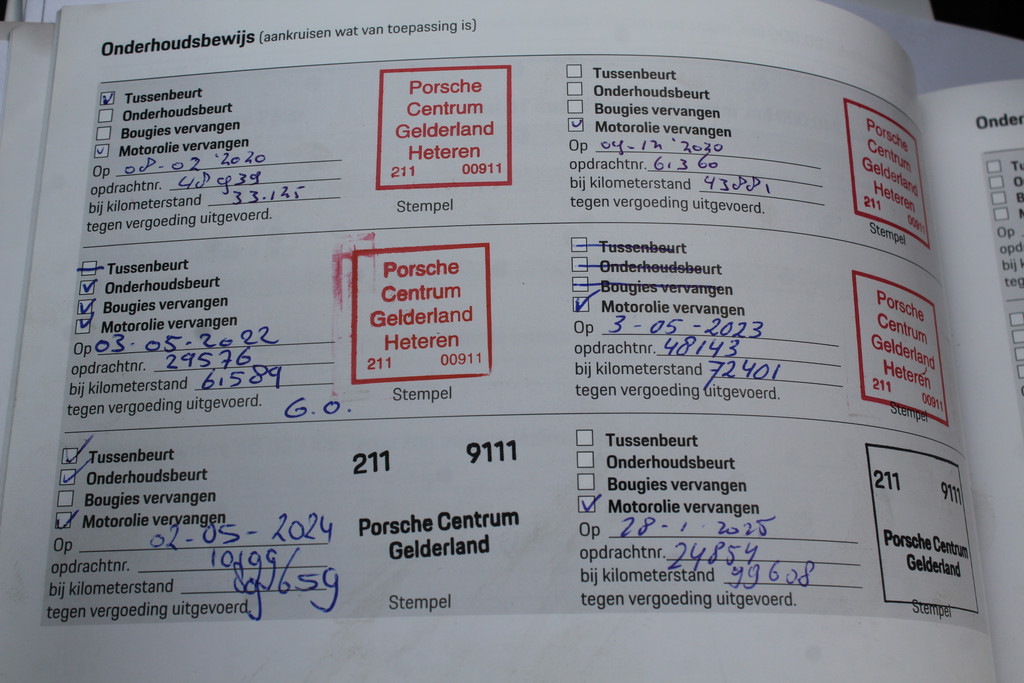 Onderhoudsbewijs (aankruisen wat van toepassing is)
Tussenbeurt
Onderhoudsbeurt
Bougies vervangen
Motorolie vervangen
Op 08-02 '2020
opdrachtnr. 48939
bij kilometerstand 33.125
tegen vergoeding uitgevoerd.
Porsche
Centrum
Gelderland
Heteren
211 00911
Stempel
Tussenbeurt
Onderhoudsbeurt
Bougies vervangen
Motorolie vervangen
Op 09-12 '2020
opdrachtnr. 6.360
bij kilometerstand 43881
tegen vergoeding uitgevoerd.
Porsche
Centrum
Gelderland
Heteren
211 00911
Stempel
Tussenbeurt
Onderhoudsbeurt
Bougies vervangen
Motorolie vervangen
Op 03-05-2022
opdrachtnr. 29576
bij kilometerstand 61589
tegen vergoeding uitgevoerd. G.O.
Porsche
Centrum
Gelderland
Heteren
211 00911
Stempel
Tussenbeurt
Onderhoudsbeurt
Bougies vervangen
Motorolie vervangen
Op 3-05-2023
opdrachtnr. 48143
bij kilometerstand 72401
tegen vergoeding uitgevoerd.
Porsche
Centrum
Gelderland
Heteren
211 00911
Stempel
Tussenbeurt
Onderhoudsbeurt
Bougies vervangen
Motorolie vervangen
Op 02-05-2024
opdrachtnr.
bij kilometerstand 89659
tegen vergoeding uitgevoerd.
211 9111
Porsche Centrum
Gelderland
Stempel
Tussenbeurt
Onderhoudsbeurt
Bougies vervangen
Motorolie vervangen
Op 28-1-2025
opdrachtnr. 24854
bij kilometerstand 99608
tegen vergoeding uitgevoerd.
211 9111
Porsche Centrum
Gelderland
Stempel
Onder
Op
opd
bij k
teg